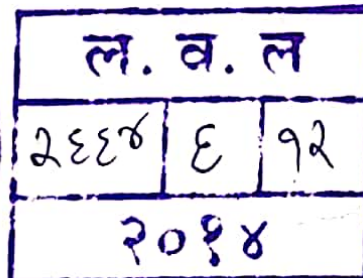 ल. व. ल
२६६४ ६ १२
२०१४